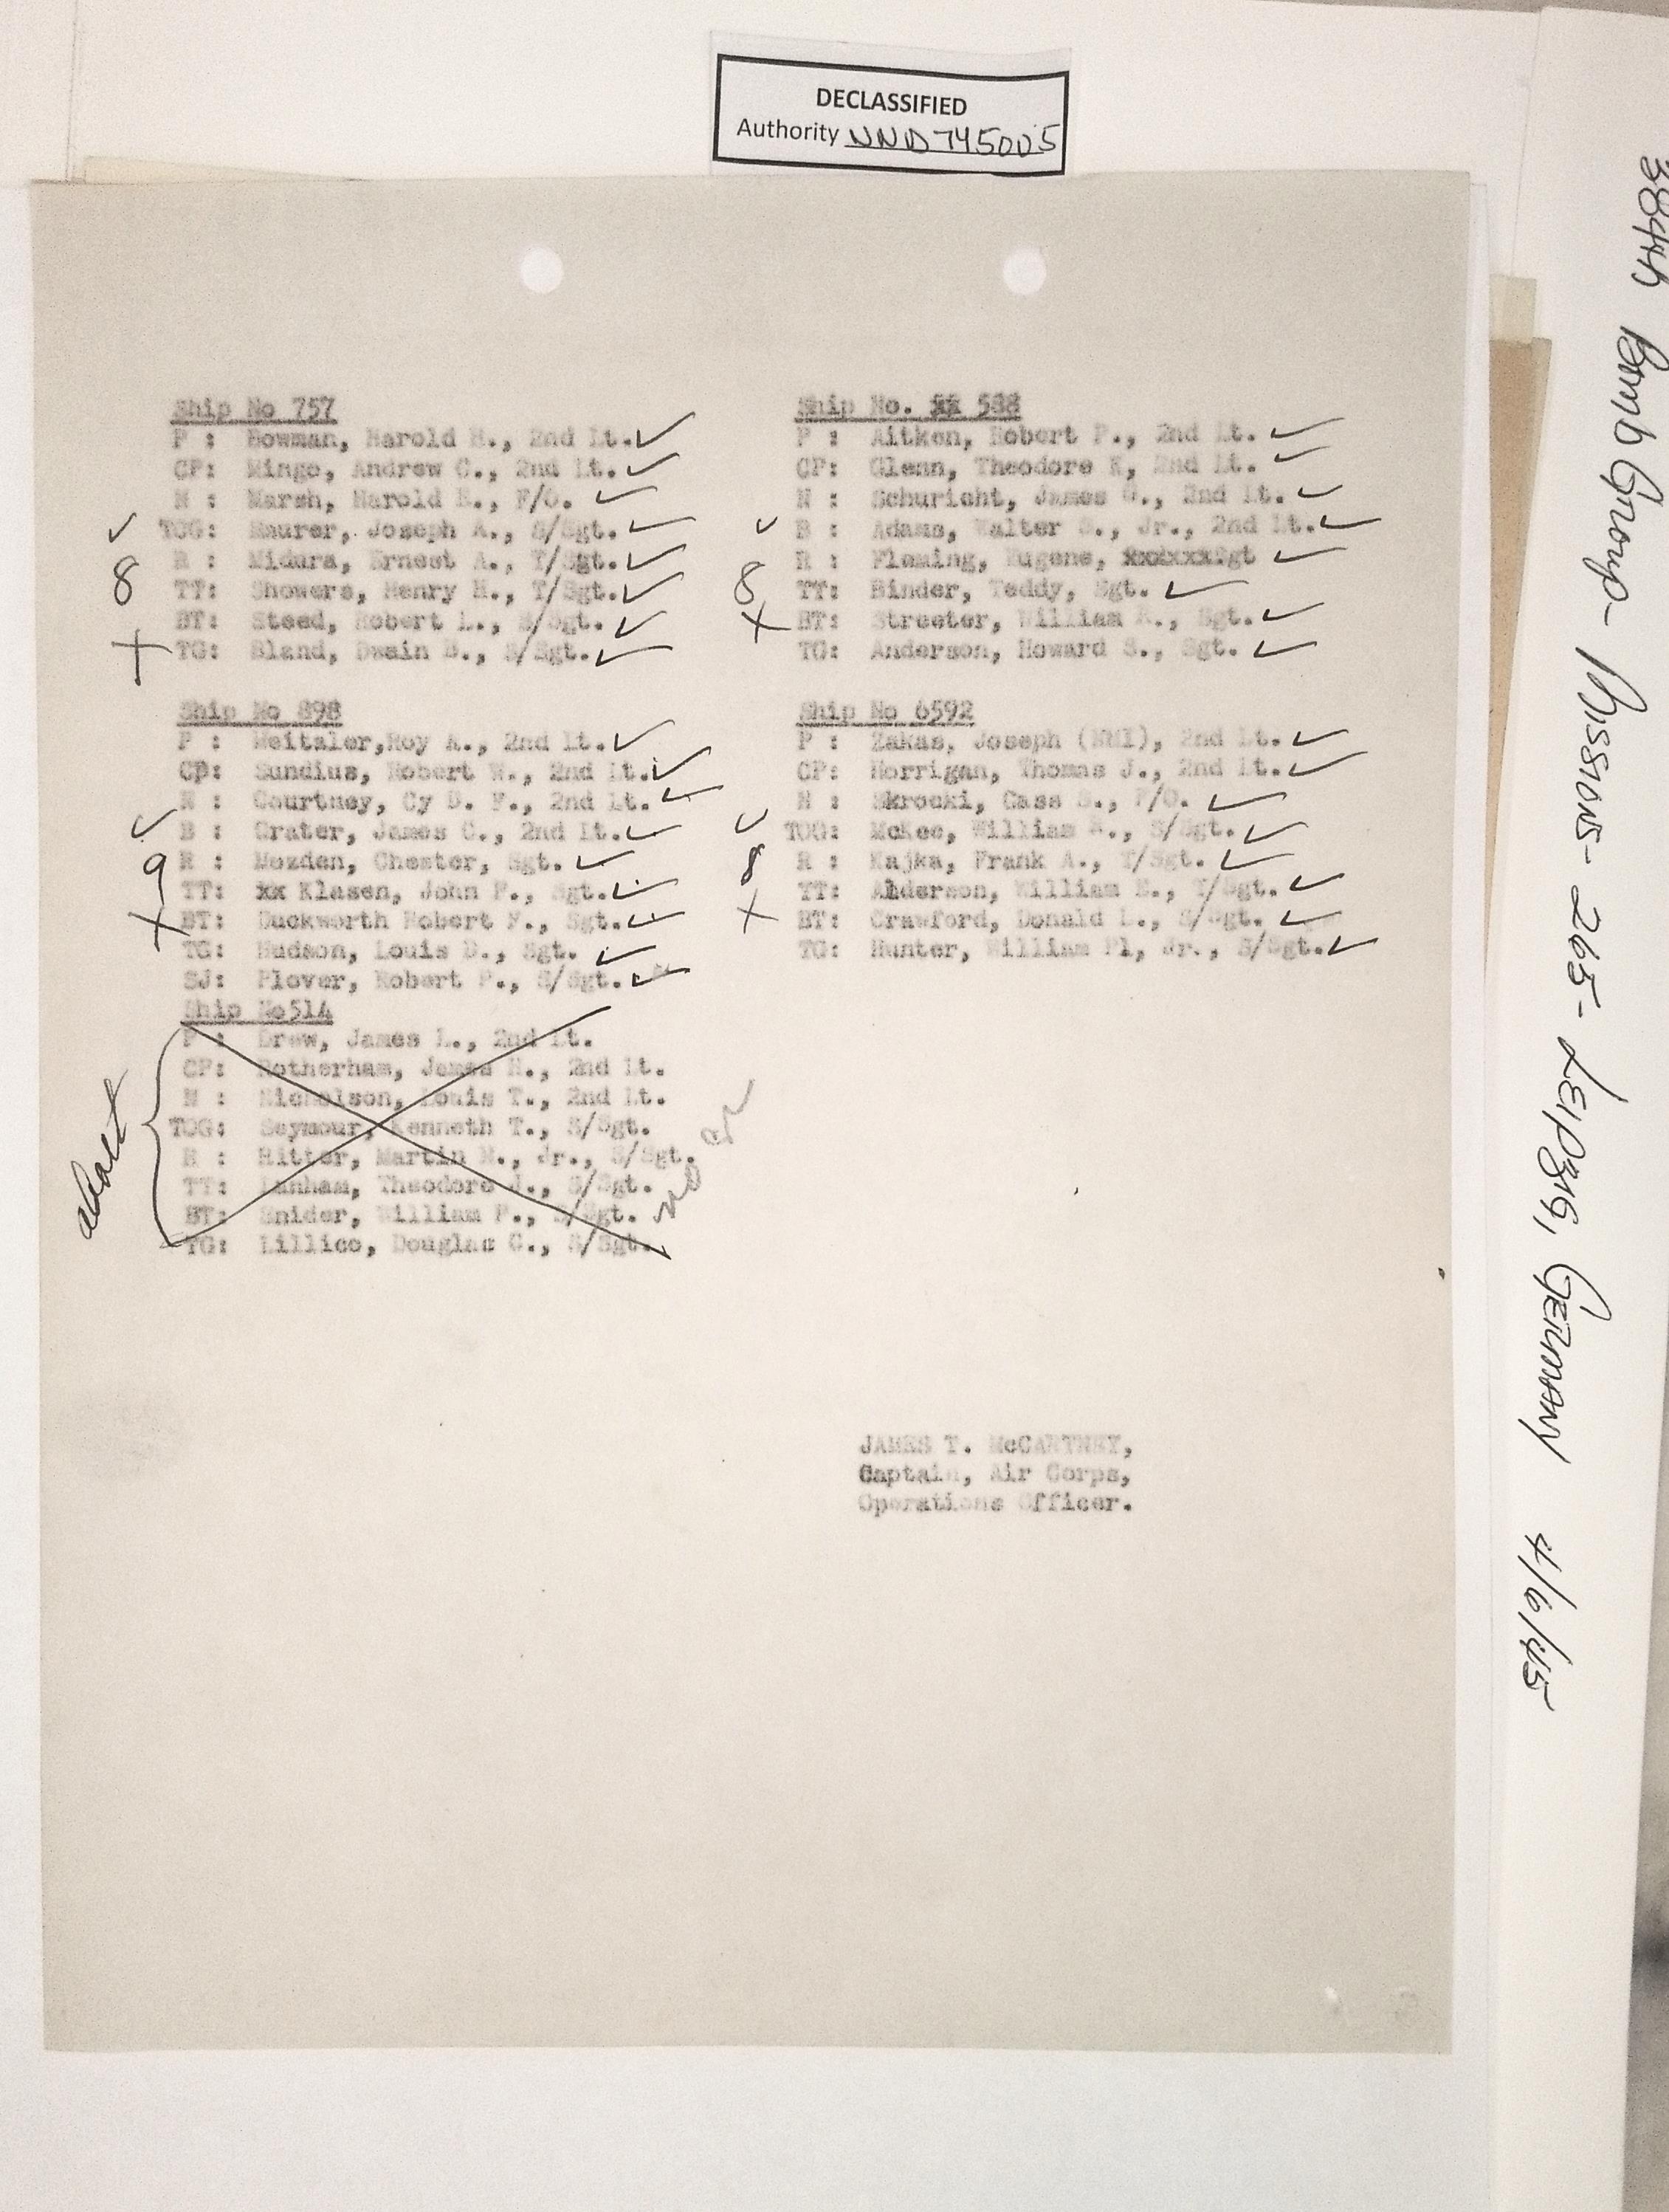 DECLASSIFIED
Authority NND 745005
Ship No 757
P : Bowman, Harold H., 2nd Lt. ✓
CP: Mingo, Andrew C., 2nd Lt. ✓
N : Marsh, Harold E., F/O. ✓
✓ TOG: Maurer, Joseph A., S/Sgt. ✓
R : Midura, Ernest A., T/Sgt. ✓
8 TT: Showers, Henry H., T/Sgt. ✓
BT: Steed, Robert L., S/Sgt. ✓
X TG: Bland, Dwain D., S/Sgt. ✓
Ship No. xx 588
P : Aitken, Robert P., 2nd Lt. ✓
CP: Glenn, Theodore K, 2nd Lt. ✓
N : Schuricht, James G., 2nd Lt. ✓
✓ B : Adams, Walter S., Jr., 2nd Lt. ✓
R : Fleming, Eugene, xxxxxxx.Sgt ✓
8 TT: Binder, Teddy, Sgt. ✓
X BT: Streeter, William A., Sgt. ✓
TG: Anderson, Howard S., Sgt. ✓
Ship No 898
P : Weitzler,Roy A., 2nd Lt. ✓
CP: Sundius, Robert W., 2nd Lt. ✓
N : Courtney, Cy D. F., 2nd Lt. ✓
✓ B : Crater, James C., 2nd Lt. ✓
9 R : Mozden, Chester, Sgt. ✓
TT: xx Klasen, John P., Sgt. ✓
X BT: Duckworth Robert F., Sgt. ✓
TG: Hudson, Louis D., Sgt. ✓
SJ: Plover, Robert P., S/Sgt. ✓
Ship No 6592
P : Zakas, Joseph (NMI), 2nd Lt. ✓
CP: Horrigan, Thomas J., 2nd Lt. ✓
N : Skrocki, Cass S., F/O. ✓
✓ TOG: McKee, William N., S/Sgt. ✓
8 R : Kajka, Frank A., T/Sgt. ✓
TT: Anderson, William E., T/Sgt. ✓
X BT: Crawford, Donald L., S/Sgt. ✓
TG: Hunter, William Pl, Jr., S/Sgt. ✓
Ship No514
P : Drew, James L., 2nd Lt.
CP: Rotherham, James H., 2nd Lt.
N : Nicholson, Louis T., 2nd Lt.
TOG: Seymour, Kenneth T., S/Sgt.
R : Ritter, Martin M., Jr., S/Sgt.
TT: Lanham, Theodore J., S/Sgt.
BT: Snider, William P., S/Sgt.
TG: Lillico, Douglas C., S/Sgt.
abort
no cr
JAMES T. McCARTNEY,
Captain, Air Corps,
Operations Officer.
384th Bomb Group- Missions- 265- Leipzig, Germany 4/6/45